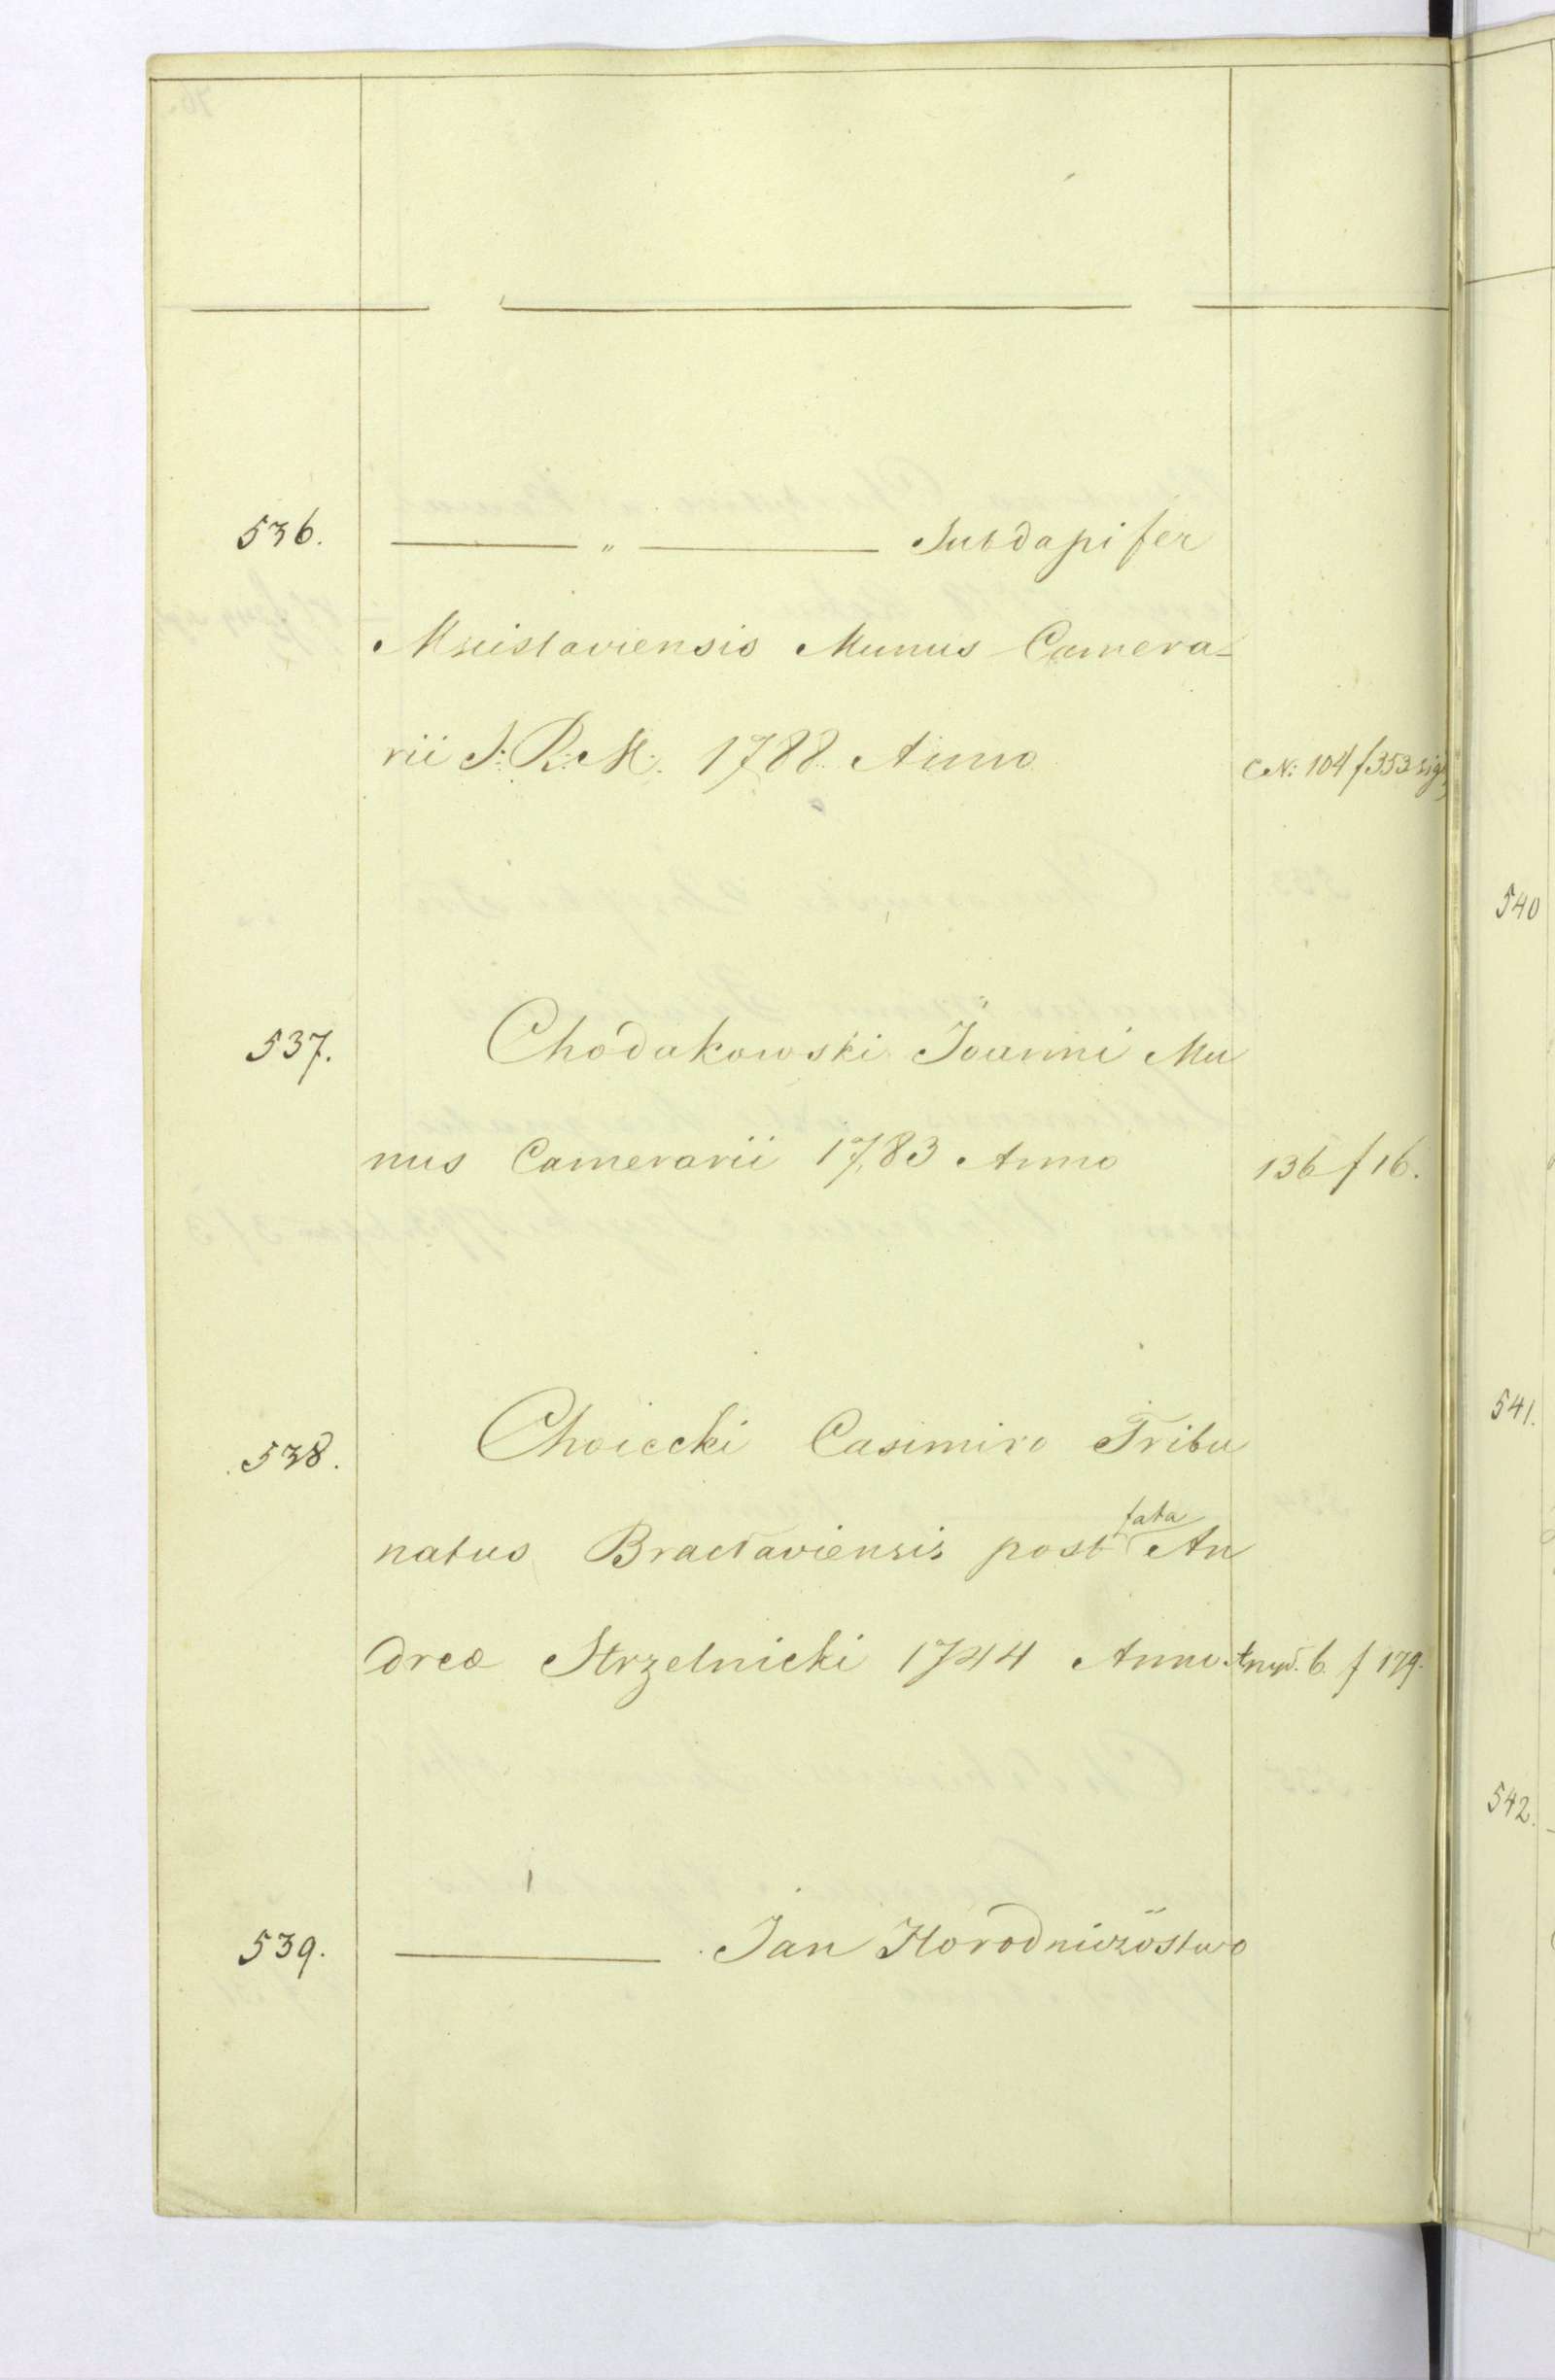 536. — " — Subdapifer
Mscislaviensis Munus Camera=
rii S: R: M: 1788. Anno CN: 104 f 353 sig
537. Chodakowski Joanni Mu
nus Camerarii 1783 Anno 136 f 16.
538. Choiecki Casimiro Tribu
natus Braclaviensis post fata An
drea Strzelnicki 1744 Anno 6 f 179.
539. — Jan Horodniczostwo
540
541.
542.